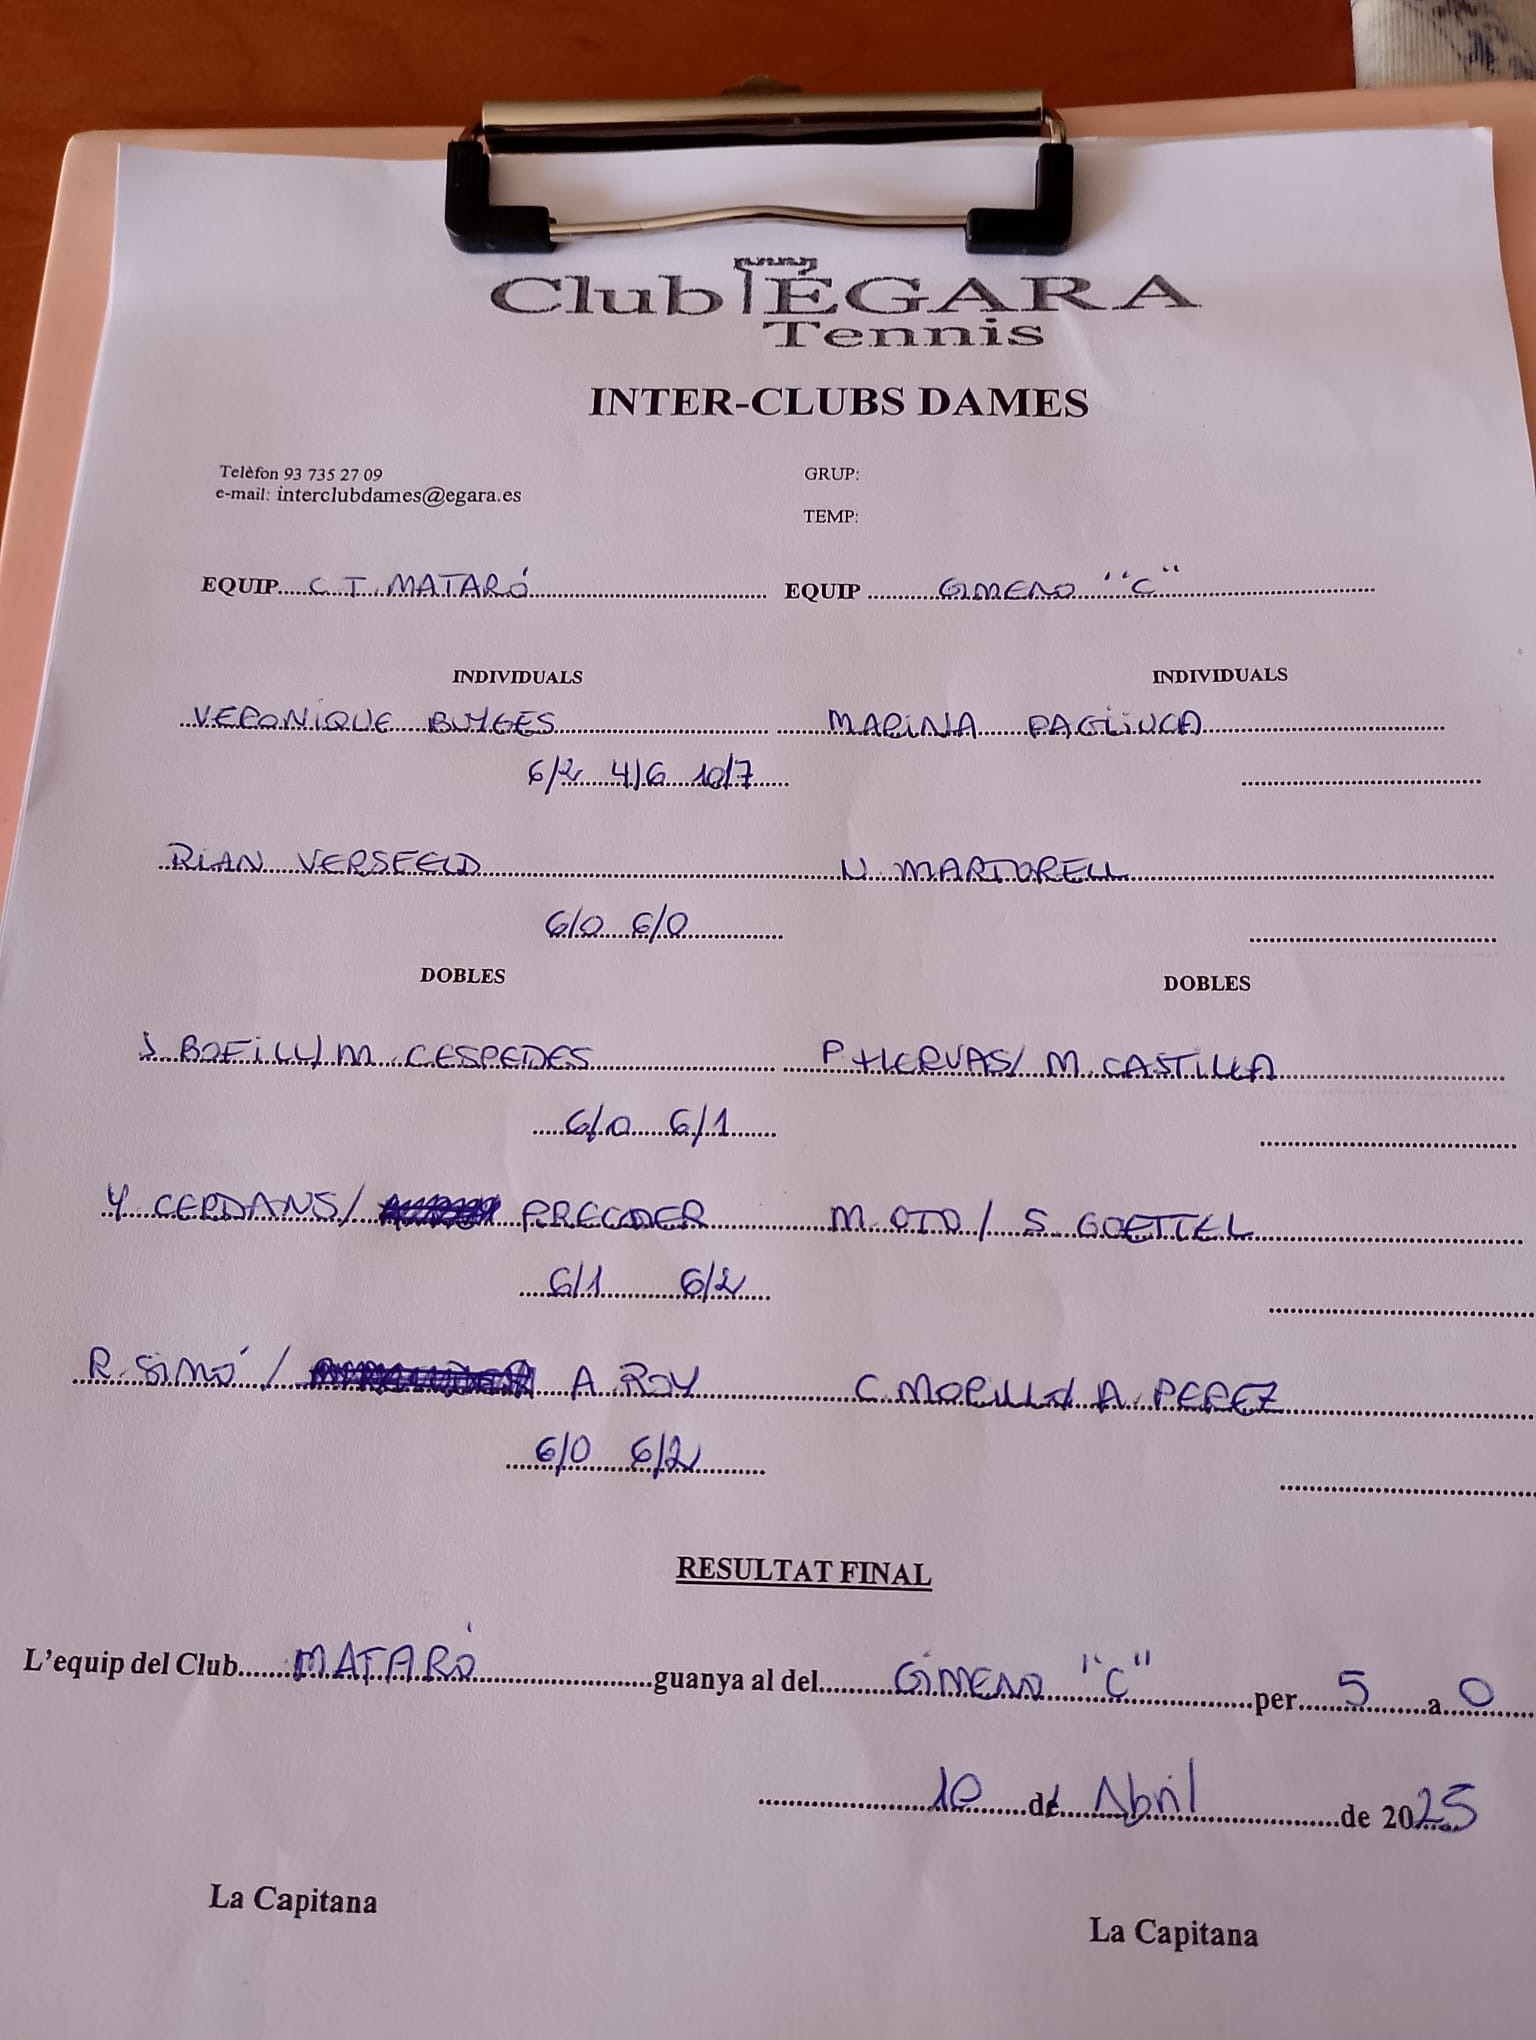 Club ÈGARA
Tennis
INTER-CLUBS DAMES
Telèfon 93 735 27 09
e-mail: interclubdames@egara.es
GRUP:
TEMP:
EQUIP C.T. MATARÓ EQUIP GIMENO "C"
INDIVIDUALS INDIVIDUALS
VERONIQUE BUYGES MARINA PAGLIUCA
6/2 4/6 10/7
RIAN VERSFELD N. MARTORELL
6/0 6/0
DOBLES DOBLES
S. BOFILL/ M. CESPEDES P. HERVAS/ M. CASTILLA
6/0 6/1
Y CERDANS/ M. OTO / S. GOETTEL
6/1 6/2
R. SIMÓ / A. ROY C. MORILLO/ A. PEREZ
6/0 6/2
RESULTAT FINAL
L'equip del Club MATARÓ guanya al del GIMENO "C" per 5 a 0
10 de Abril de 2025
La Capitana
La Capitana